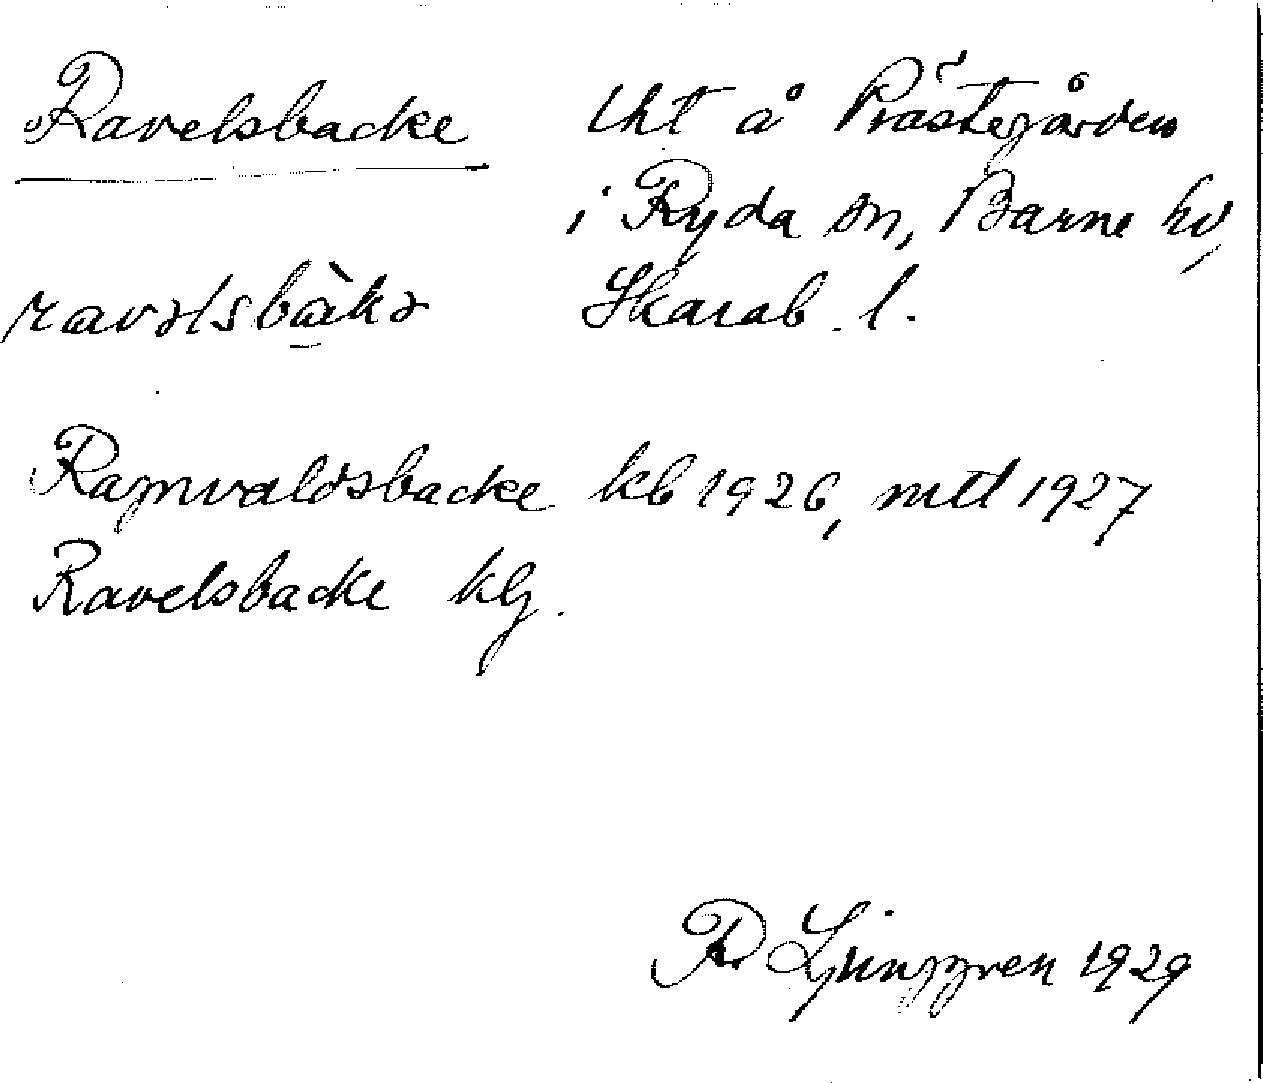 Ravelsbacke lht å Prästegården
i Ryda sn, Barne hd,
ravəlsbàkə Skarab. l.
Ragnvaldsbacke kb 1926, mtl 1927
Ravelsbacke klg.
R. Ljunggren 1929